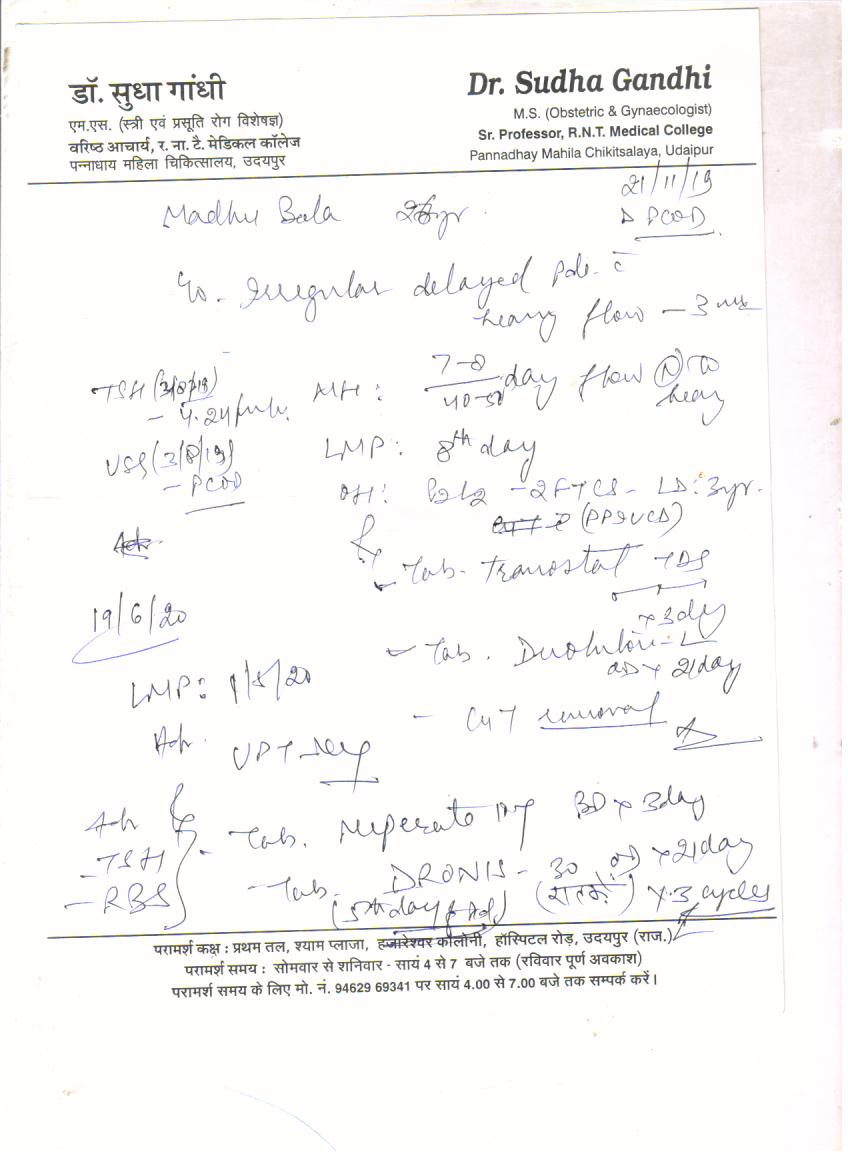 डॉ. सुधा गांधी
एम.एस. (स्त्री एवं प्रसूति रोग विशेषज्ञ)
वरिष्ठ आचार्य, र. ना. टै. मेडिकल कॉलेज
पन्नाधाय महिला चिकित्सालय, उदयपुर
Dr. Sudha Gandhi
M.S. (Obstetric & Gynaecologist)
Sr. Professor, R.N.T. Medical College
Pannadhay Mahila Chikitsalaya, Udaipur
21/11/19
Madhu Bala
Δ PCOD
Irregular delayed
heavy flow - 3
TSH (3/8/19)
- 4.24
USG (3/8/19)
- PCOD
MH: 7-8
day flow (N) to
heavy
LMP: 8th day
OH: P2L2 - 2FTCS - LD: 3yr.
(PPIUCD)
- Tab. Tranostat TDS
x 3day
- Tab. -L
OD x 21day
- CuT removal
19/6/20
LMP:
Adv. UPT
Adv
- TSH
- RBS
- Tab. BD x 3day
- Tab. DRONIS - 30 OD x 21day
(5th day of (रात को) x 3 cycles
परामर्श कक्ष : प्रथम तल, श्याम प्लाजा, हजारेश्वर कॉलोनी, हॉस्पिटल रोड़, उदयपुर (राज.)
परामर्श समय : सोमवार से शनिवार - सायं 4 से 7 बजे तक (रविवार पूर्ण अवकाश)
परामर्श समय के लिए मो. नं. 94629 69341 पर सायं 4.00 से 7.00 बजे तक सम्पर्क करें।